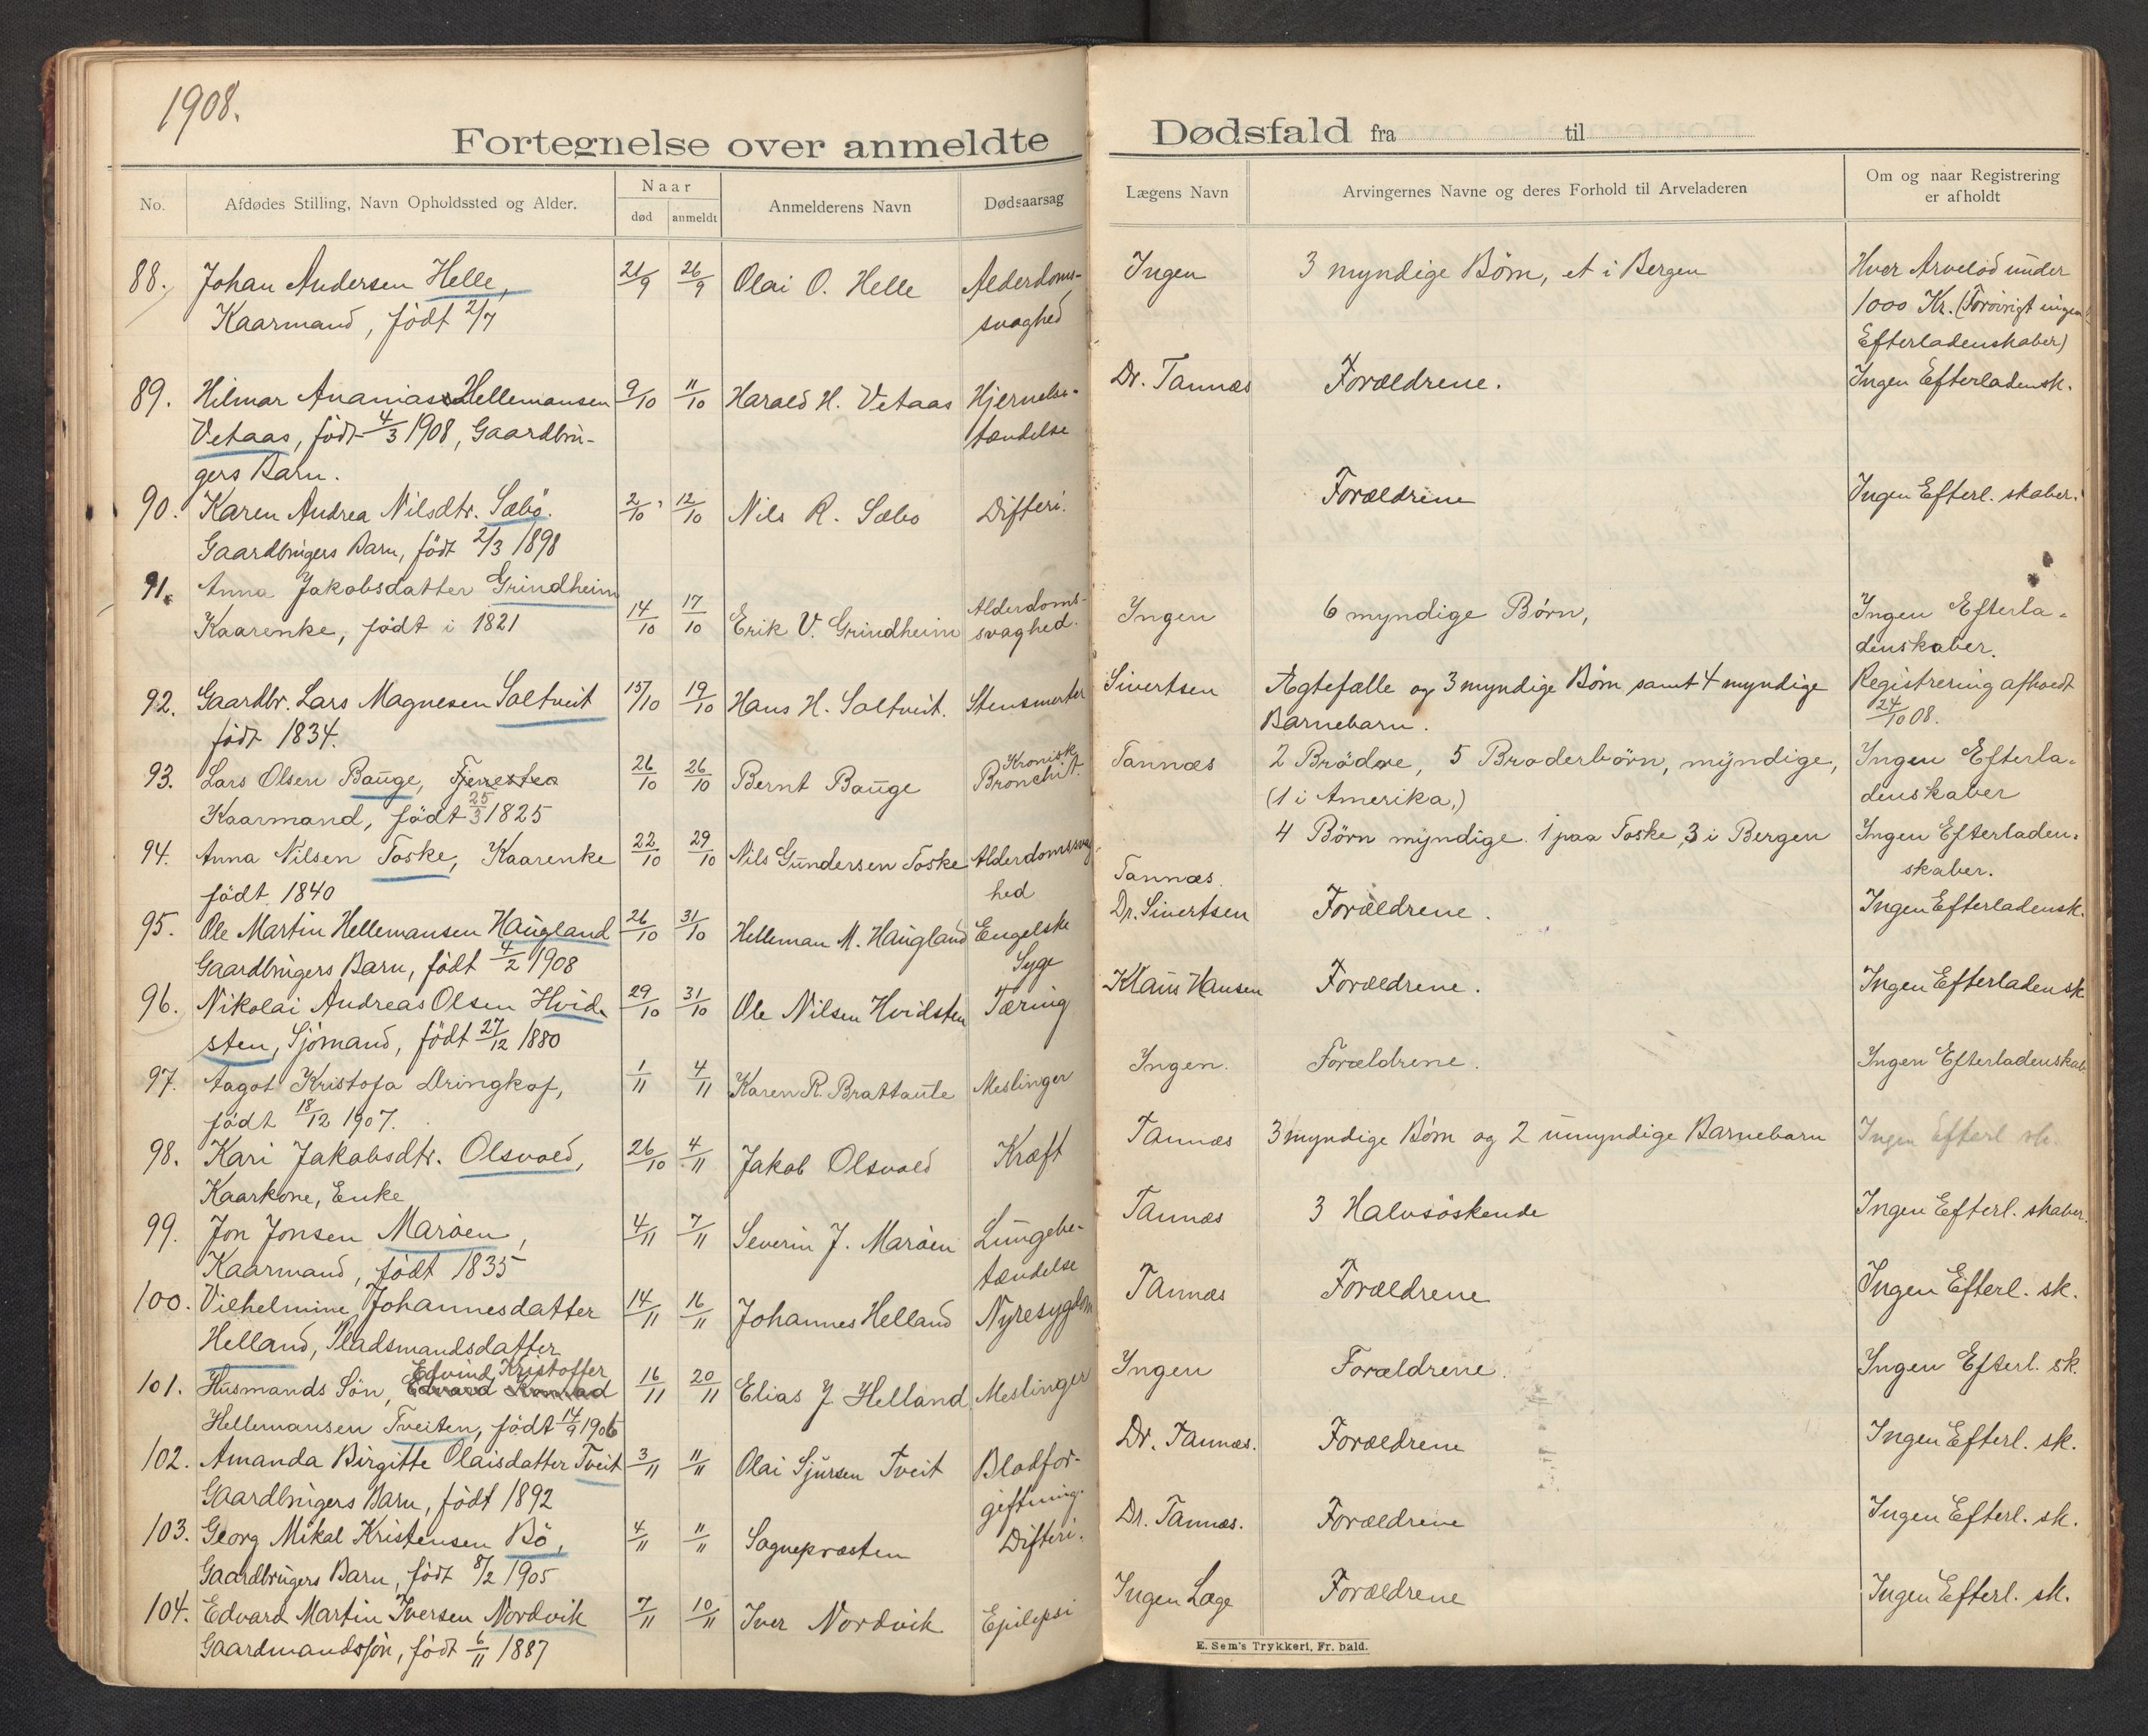 1908.
Fortegnelse over anmeldte Dødsfald fra til
No. Afdødes Stilling, Navn Opholdssted og Alder. Naar død anmeldt Anmelderens Navn Dødsaarsag Lægens Navn Arvingernes Navne og deres Forhold til Arveladeren Om og naar Registrering er afholdt
88. Johan Andersen Helle, 21/9 26/9 Olai O. Helle Alderdoms- Ingen 3 myndige Børn, et i Bergen Hver Arvelod under
Kaarmand, født 2/7 svaghed 1000 Kr. (Forøvrigt ingen
Efterladenskaber)
89. Hilmar Ananias Hellemansen 9/10 11/10 Harald H. Vetaas Hjernebe- Dr. Tannæs Forældrene. Ingen Efterladensk.
Vetaas, født 4/3 1908, Gaardbru- tændelse
gers Barn.
90. Karen Andrea Nilsdtr. Sæbö. 2/10 12/10 Nils R. Sæbo Difteri. Forældrene Ingen Efterl. skaber.
Gaardbrugers Barn, födt 2/3 1898
91. Anna Jakobsdatter Grindheim
Kaarenke, født i 1821 14/10 17/10 Erik V. Grindheim Alderdoms- svaghed. Ingen 6 myndige Børn, Ingen Efterla-
denskaber.
92. Gaardbr. Lars Magnesen Saltveit 15/10 19/10 Hans H. Saltveit. Stensmerter Sivertsen Ægtefælle og 3 myndige Børn samt 4 myndige Registrering afholdt
født 1834. Barnebarn. 24/10 08.
93. Lars Olsen Bauge, Tjenestea 26/10 26/10 Bernt Bauge Kronisk Bronchit. Tannæs 2 Brödre, 5 Broderbörn, myndige, Ingen Efterla-
Kaarmand, født 25/3 1825 (1 i Amerika,) denskaber
94. Anna Nilsen Toske, Kaarenke 22/10 29/10 Nils Gundersen Toske Alderdomssvag Tannæs. 4 Börn myndige 1 paa Toske, 3 i Bergen Ingen Efterladen-
født 1840 hed skaber.
95. Ole Martin Hellemansen Haugland 26/10 31/10 Helleman M. Haugland Engelske Dr. Sivertsen Forældrene. Ingen Efterladensk.
Gaardbrugers Barn, født 4/2 1908 Syge
96. Nikolai Andreas Olsen Hvid- 29/10 31/10 Ole Nilsen Hvidsten Tæring Klaus Hansen Forældrene. Ingen Efterladensk.
sten, Sjömand, født 27/12 1880
97. Aagot Kristofa Dringkof, 1/11 4/11 Karen R. Brattaule Meslinger Ingen. Forældrene. Ingen Efterladenskab.
født 18/12 1907.
98. Kari Jakobsdtr. Olsvold, 26/10 4/11 Jakob Olsvold Kræft Tannæs 3 myndige Børn og 2 umyndige Barnebarn Ingen Efterl sk.
Kaarkone, Enke
99. Jon Jonsen Maröen, 4/11 7/11 Severin J. Maröen Lungebe- Tannæs 3 Halvsöskende Ingen Efterl. skaber.
Kaarmand, født 1835 tændelse
100. Vilhelmine Johannesdatter 14/11 16/11 Johannes Helland Nyresygdom Tannæs Forældrene Ingen Efterl. sk.
Helland, Pladsmandsdatter
Edvind Kristoffer
101. Husmands Sön, Edvard Konrad 16/11 20/11 Elias J. Helland Meslinger Ingen Forældrene. Ingen Efterl. sk.
Hellemansen Tveiten, født 14/9 1906
102. Amanda Birgitte Olaisdatter Tveit 3/11 11/11 Olai Sjursen Tveit Blodfor- Dr. Tannæs. Forældrene Ingen Efterl. sk.
Gaardbrugers Barn, født 1892 giftning.
103. Georg Mikal Kristensen Bö, 4/11 11/11 Sognepræsten Difteri. Dr. Tannæs. Forældrene Ingen Efterl. sk.
Gaardbrugers Barn, født 8/2 1905
104. Edvard Martin Iversen Nordvik 7/11 10/11 Iver Nordvik Epilepsi Ingen Læge Forældrene Ingen Efterl. sk.
Gaardmandssön, født 6/11 1887
E. Sem's Trykkeri, Fr. hald.